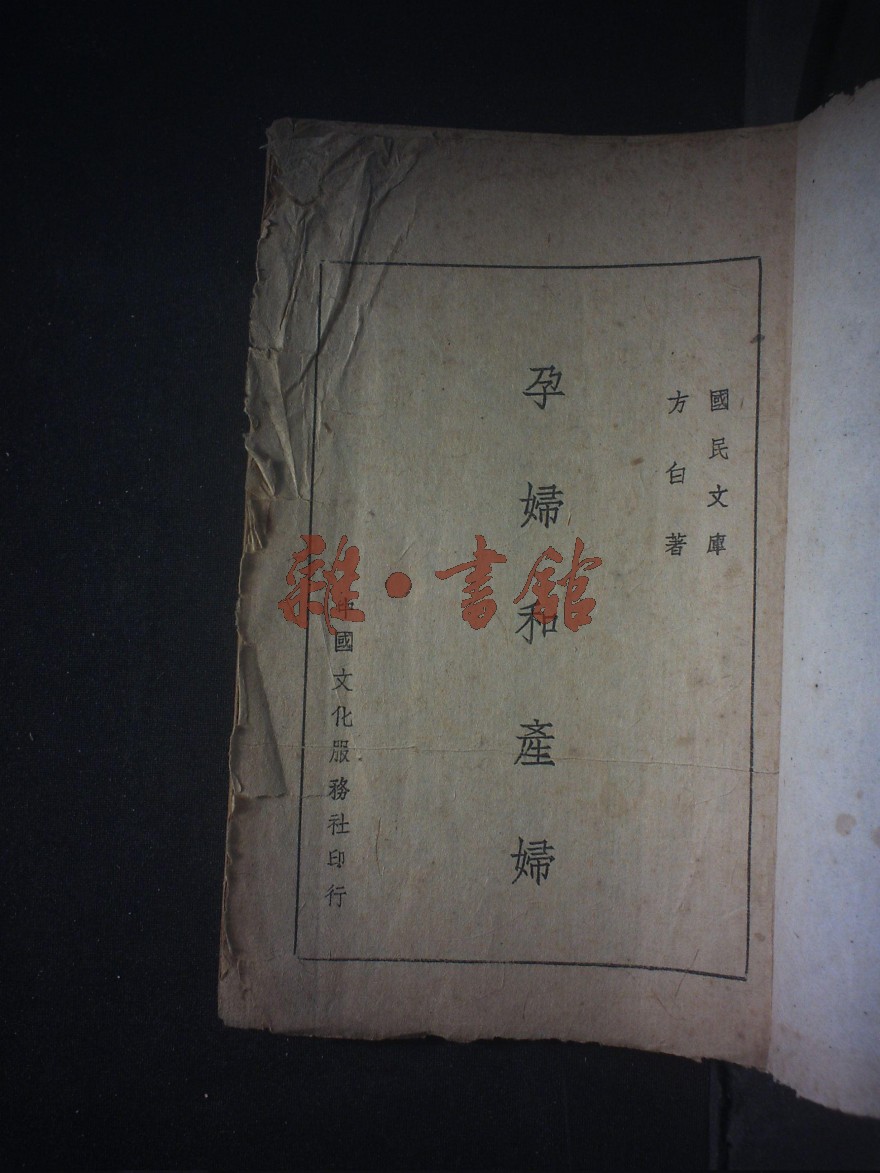 國民文庫
方白著
孕婦和產婦
中國文化服務社印行
雜·書館